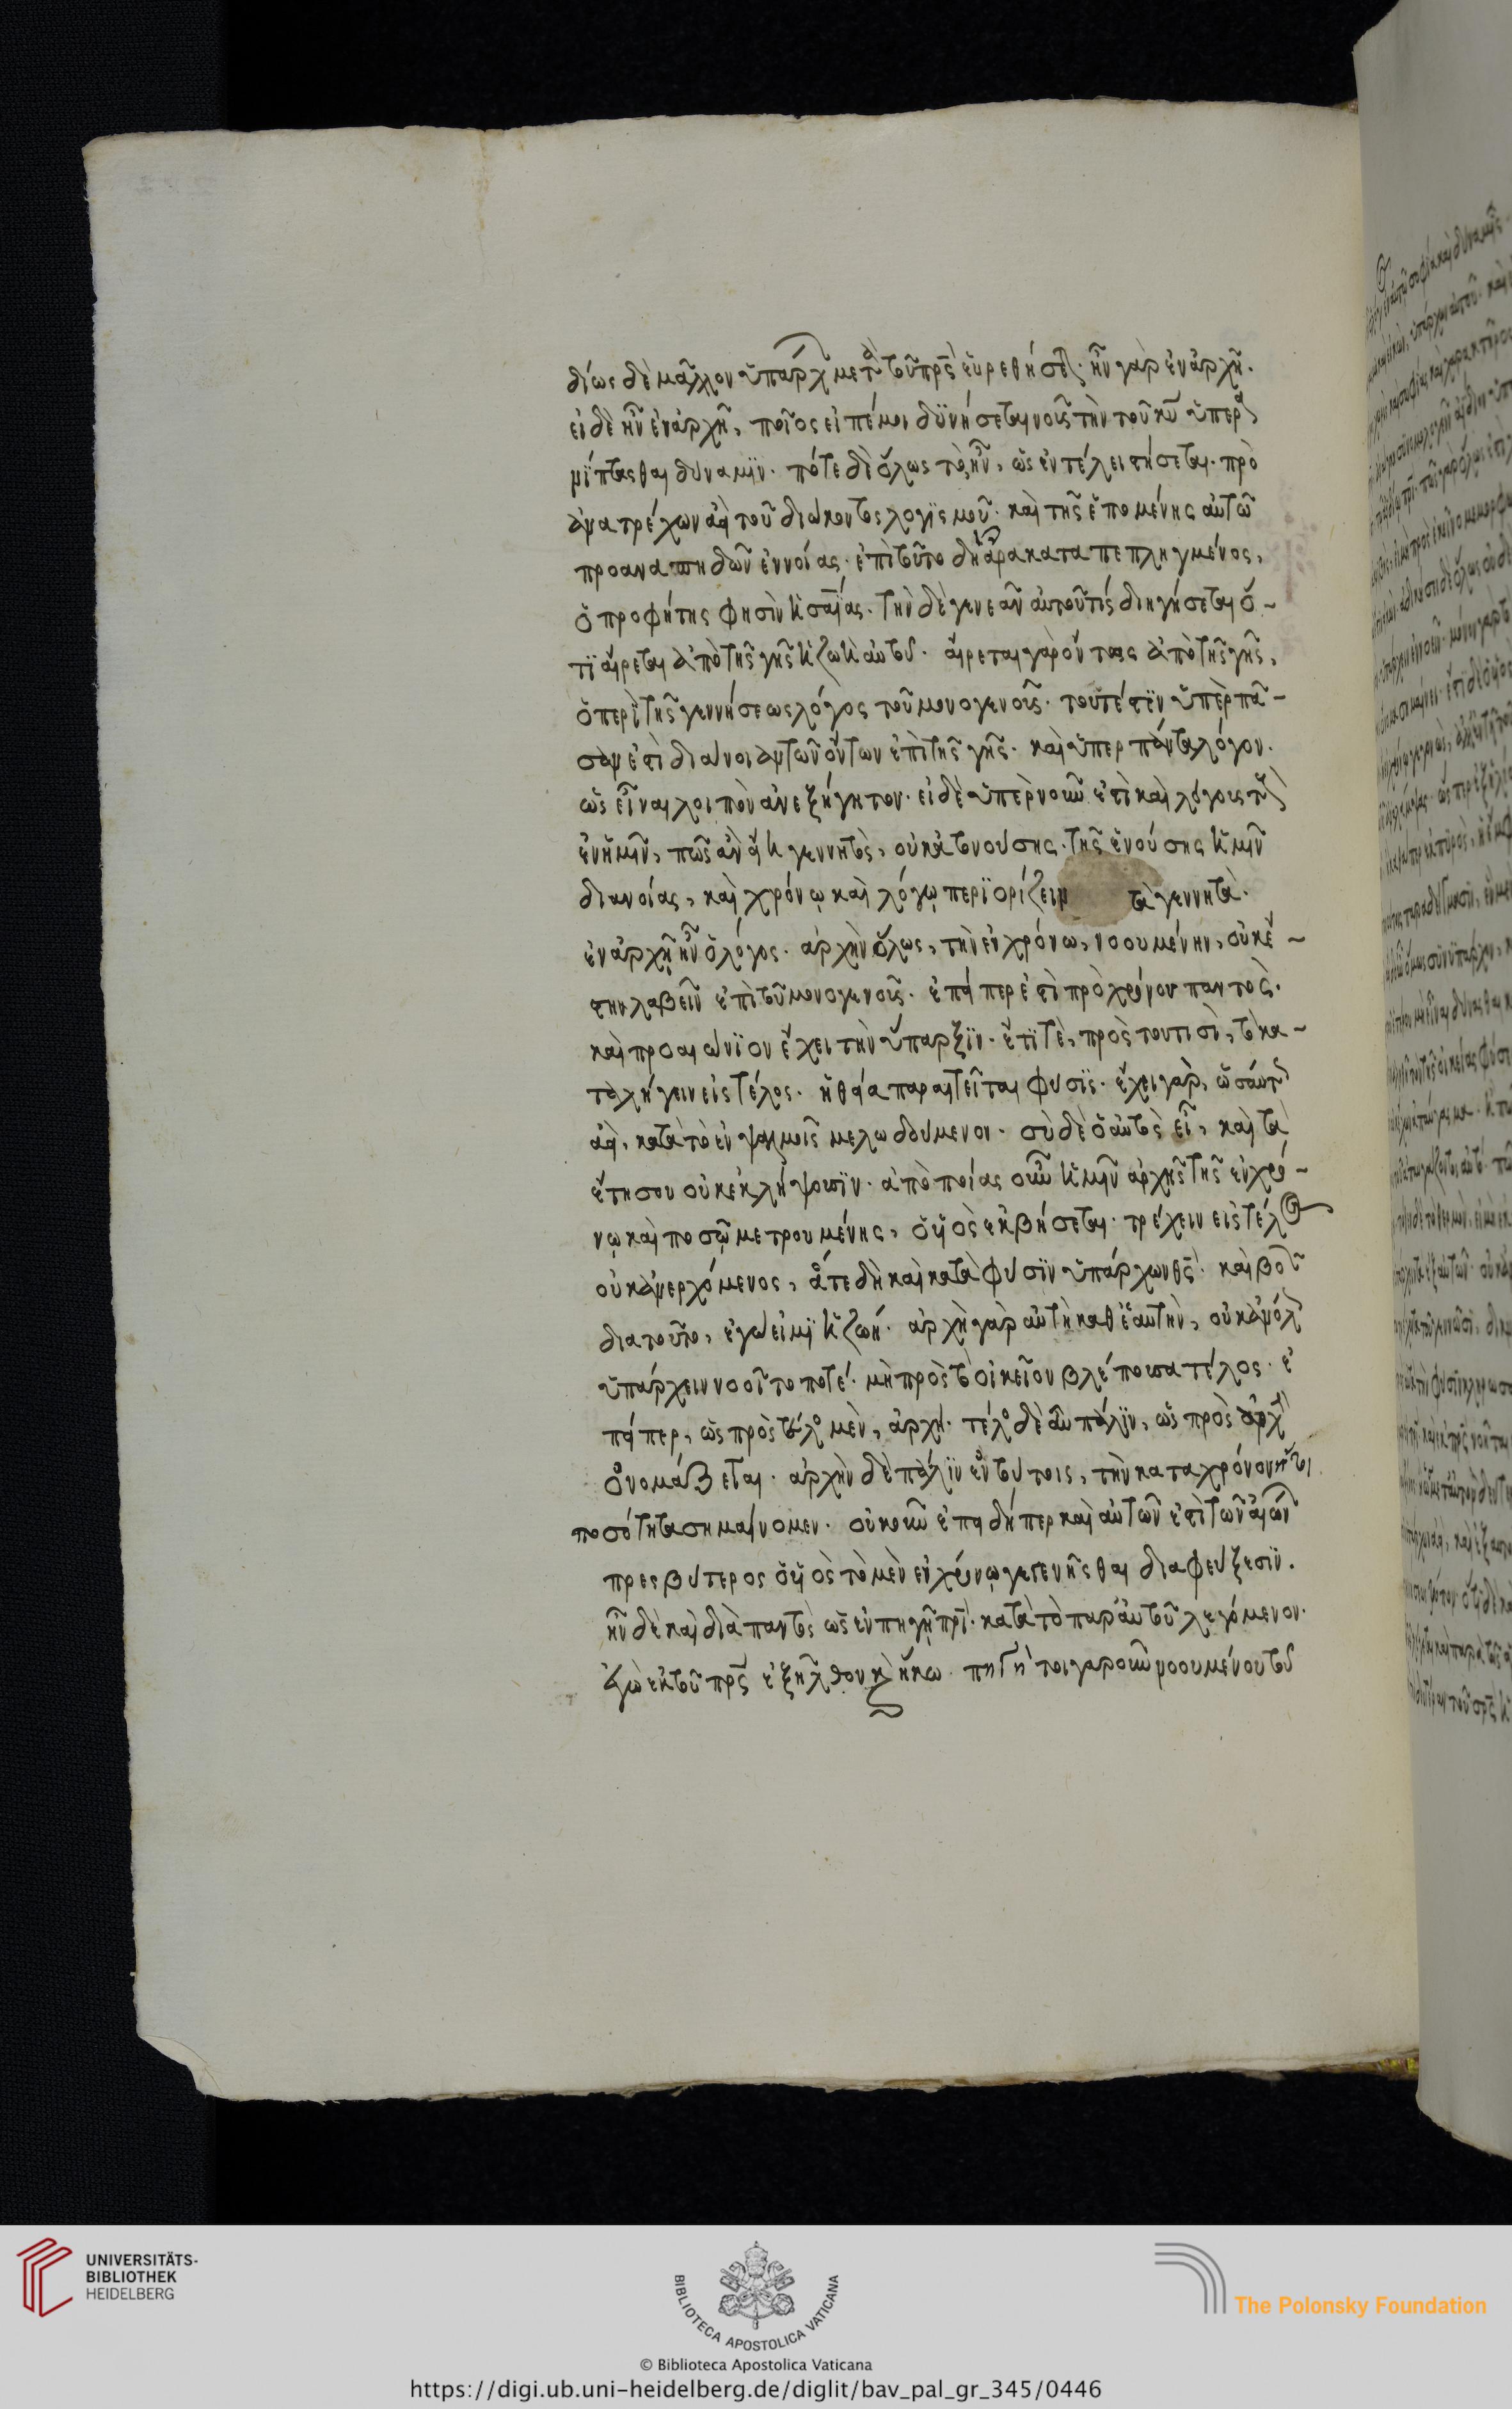 δίως δὲ μᾶλλον ὑπάρχων μετὰ τοῦ πρς εὑρεθήσεται· ἦν γὰρ ἐν ἀρχῆ.
εἰ δὲ ἦν ἐν ἀρχῆ, ποῖος εἰπέ μοι δϋνήσεται νοῦς τὴν τοῦ ἦν ὑπερ
ΐπτασθαι δυναμϊν. πότε δὲ ὅλως τὸ ἦν, ὡς ἐν τέλει στήσεται. πρὸ
ἀνατρέχων ἀεὶ τοῦ διώκοντος λογϊσμοῦ. καὶ τῆς ἑπομένης αὐτῶ
προαναπηδῶν ἐννοίας. ἐπὶ τοῦτο δὴ ἄρα καταπεπληγμένος,
ὁ προφήτης φησὶν ἠσαΐας. τὴν δὲ γενεαν αὐτοῦ τίς διηγήσεται ὅ-
τϊ αἴρεται ἀπὸ τῆς γῆς ἡ ζωὴ αὐτοῦ. αἴρεται γὰρ ὄντως ἀπὸ τῆς γῆς,
ὁ περὶ τῆς γεννήσεως λόγος τοῦ μονογενοῦς. τουτέστϊν ὑπὲρ πᾶ-
σαν ἐστὶ διάνοιαν τῶν ὄντων ἐπὶ τῆς γῆς. καὶ ὑπερ πάντα λόγον.
ὡς εἶναι λοιπὸν ἀνεξήγητον. εἰ δὲ ὑπὲρ νοῦν ἐστὶ καὶ λόγον τὸν
ἐν ἡμῖν, πῶς ἂν εἴη γεννητὸς, οὐκ ἀτονούσης τῆς ἐνούσης ἡμῖν
διανοίας, καὶ χρόνω καὶ λόγω περϊορίζειν τὰ γεννητὰ.
ἐν ἀρχῆ ἦν ὁ λόγος. ἀρχὴν ὅλως, τὴν ἐν χρόνω, νοουμένην, οὐκ ἔ-
στην λαβεῖν ἐπὶ τοῦ μονογενοῦς. ἐπείπερ ἐστὶ πρὸ χρόνου παντὸς.
καὶ προαιώνϊον ἔχει τὴν ὕπαρξϊν. ἔτϊ τὲ, πρὸς τουτισὶ, τὸ κα-
ταλήγειν εἰς τέλος. ἡ θεία παραιτεῖται φυσϊς. ἔχει γὰρ, ὡσαύτως
ἀεὶ, κατὰ τὸ ἐν ψαλμοῖς μελωδούμενον. σὺ δὲ ὁ αὐτὸς εἶ, καὶ τὰ
ἔτη σου οὐκ ἐκλήψουσϊν. ἀπὸ ποίας οὖν ἡμῖν ἀρχῆς τῆς ἐν χρό-
νω καὶ ποσῶ μετρουμένης, ὁ υἱὸς ἐκβήσεται. τρέχειν εἰς τέλος
οὐκ ἀνεχόμενος, ἅτε δὴ καὶ κατὰ φύσϊν ὑπάρχων θς· καὶ βοῶν
δια τοῦτο, ἐγώ εἰμϊ ἡ ζωή. ἀρχὴ γὰρ αὐτὴ καθ' ἑαυτὴν, οὐκ ἂν ὅλως
ὑπάρχειν νοοῖτο ποτέ. μὴ πρὸς τὸ οἰκεῖον βλέπουσα τέλος. ἐ
πείπερ, ὡς πρὸς τέλος μὲν, ἀρχή. τέλος δὲ αὖ πάλϊν, ὡς πρὸς ἀρχὴν
ὀνομάζεται. ἀρχὴν δὲ πάλϊν ἐν τούτοις, τὴν κατα χρόνον ἤτοι
ποσότητα σημαίνομεν. οὐκοῦν ἐπειδήπερ καὶ αὐτῶν ἐστὶ τῶν αἰώνων
πρεσβύτερος ὁ υἱὸς τὸ μὲν ἐν χρόνω γεγενῆσθαι διαφεύξεσϊν.
ἦν δὲ καὶ διὰ παντὸς ὡς ἐν πηγῆ πρι· κατὰ τὸ παρ' αὐτοῦ λεγόμενον.
ἐγὼ ἐκ τοῦ πρς ἐξῆλθον καὶ ἥκω. πηγῆς τοιγαροῦν νοουμένου τοῦ
UNIVERSITÄTS-
BIBLIOTHEK
HEIDELBERG
BIBLIOTECA APOSTOLICA VATICANA
The Polonsky Foundation
© Biblioteca Apostolica Vaticana
https://digi.ub.uni-heidelberg.de/diglit/bav_pal_gr_345/0446